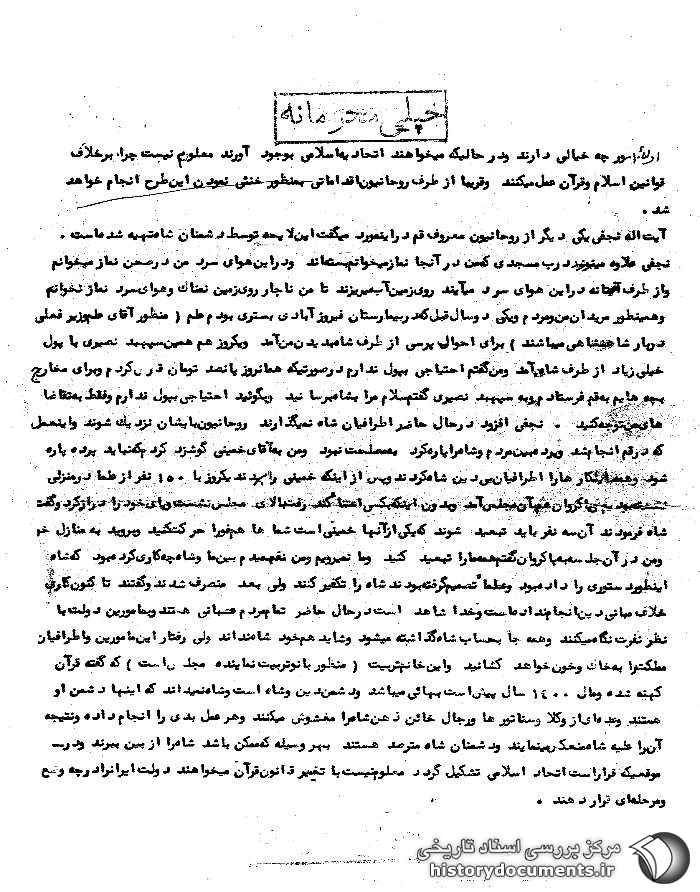 خیلی محرمانه
امور چه خیالی دارند ودر حالیکه میخواهند اتحادیه اسلامی بوجود آورند معلوم نیست چرا برخلاف
قوانین اسلام وقرآن عمل میکنند وقریبا از طرف روحانیون اقداماتی بمنظور خنثی نمودن این طرح انجام خواهد
شد .
آیت اله نجفی یکی دیگر از روحانیون معروف قم در اینمورد میگفت این لایحه توسط دشمنان شاه تهیه شده است .
نجفی علاوه مینمود درب مسجدی که من در آنجا نماز میخوانم بسته‌اند ودر این هوای سرد من در صحن نماز میخوانم
واز طرف آستانه در این هوای سرد میآیند روی زمین آب میریزند تا من ناچار روی زمین نمناک وهوای سرد نماز نخوانم
وهمینطور مریدان من ومردم ویکی دو سال قبل که در بیمارستان فیروزآبادی بستری بودم علم ( منظور آقای علم وزیر فعلی
دربار شاهنشاهی میباشند ) برای احوال پرسی از طرف شاه بدیدن من آمد ویکروز هم همین سپهبد نصیری با پول
خیلی زیاد از طرف شاه آمد ومن گفتم احتیاجی بپول ندارم در صورتیکه همانروز پانصد تومان قرض کردم وبرای مخارج
بچه هایم به قم فرستادم وبه سپهبد نصیری گفتم سلام مرا بشاه برسانید وبگوئید احتیاجی بپول ندارم وفقط به تقاضا
های من توجه کنید . نجفی افزود در حال حاضر اطرافیان شاه نمیگذارند روحانیون بایشان نزدیک شوند واینعمل
که در قم انجام شد وپرده بین مردم وشاه را پاره کرد بمصلحت نبود ومن به آقای خمینی گوشزد کردم که نباید پرده پاره
شود وهمه اینکار ها را اطرافیان بی دین شاه کردند وپس از اینکه خمینی را بردند یکروز با ۱۵۰ نفر از علما در منزلی
نشسته بودیم پاکروان هم آن مجلس آمد وبدون اینکه بکسی اعتنا کند رفت بالای مجلس نشست وپای خود را دراز کرد وگفت
شاه فرمودند آن سه نفر باید تبعید شوند که یکی از آنها خمینی است شما ها هم فورا حرکت کنید وبروید به منازل خو
ومن در آن جلسه به پاکروان گفتم همه ما را تبعید کنید وما نمیرویم ومن نفهمیدم بین ما وشاه چه کاری کرده بود که شاه
اینطور دستوری را داده بود وعلما تصمیم گرفته بودند شاه را تکفیر کنند ولی بعد منصرف شدند وگفتند تا کنون کاری
خلاف مبانی دین انجام نداده است وخدا شاهد است در حال حاضر تمام مردم عصبانی هستند وبمامورین دولت با
نظر نفرت نگاه میکنند وهمه جا بحساب شاه گذاشته میشود وشاید هم خود شاه نداند ولی رفتار این مامورین واطرافیان
مملکت را به خاک وخون خواهد کشانید واین خانم تربیت ( منظور بانو تربیت نماینده مجلس است ) که گفته قرآن
کهنه شده ومال ۱۴۰۰ سال پیش است بهائی میباشد ودشمن دین وشاه است وشاه نمیداند که اینها دشمن او
هستند وعده‌ای از وکلا وسناتور ها ورجال خائن ذهن شاه را مغشوش میکنند وهر عمل بدی را انجام داده ونتیجه
آن را علیه شاه منعکس مینمایند ودشمنان شاه مترصد هستند بهر وسیله که ممکن باشد شاه را از بین ببرند ودر
موقعیکه قرار است اتحاد اسلامی تشکیل گردد معلوم نیست با تغییر قانون قرآن میخواهند دولت ایران را در چه وضع
ومرحله‌ای قرار دهند .
مرکز بررسی اسناد تاریخی
historydocuments.ir